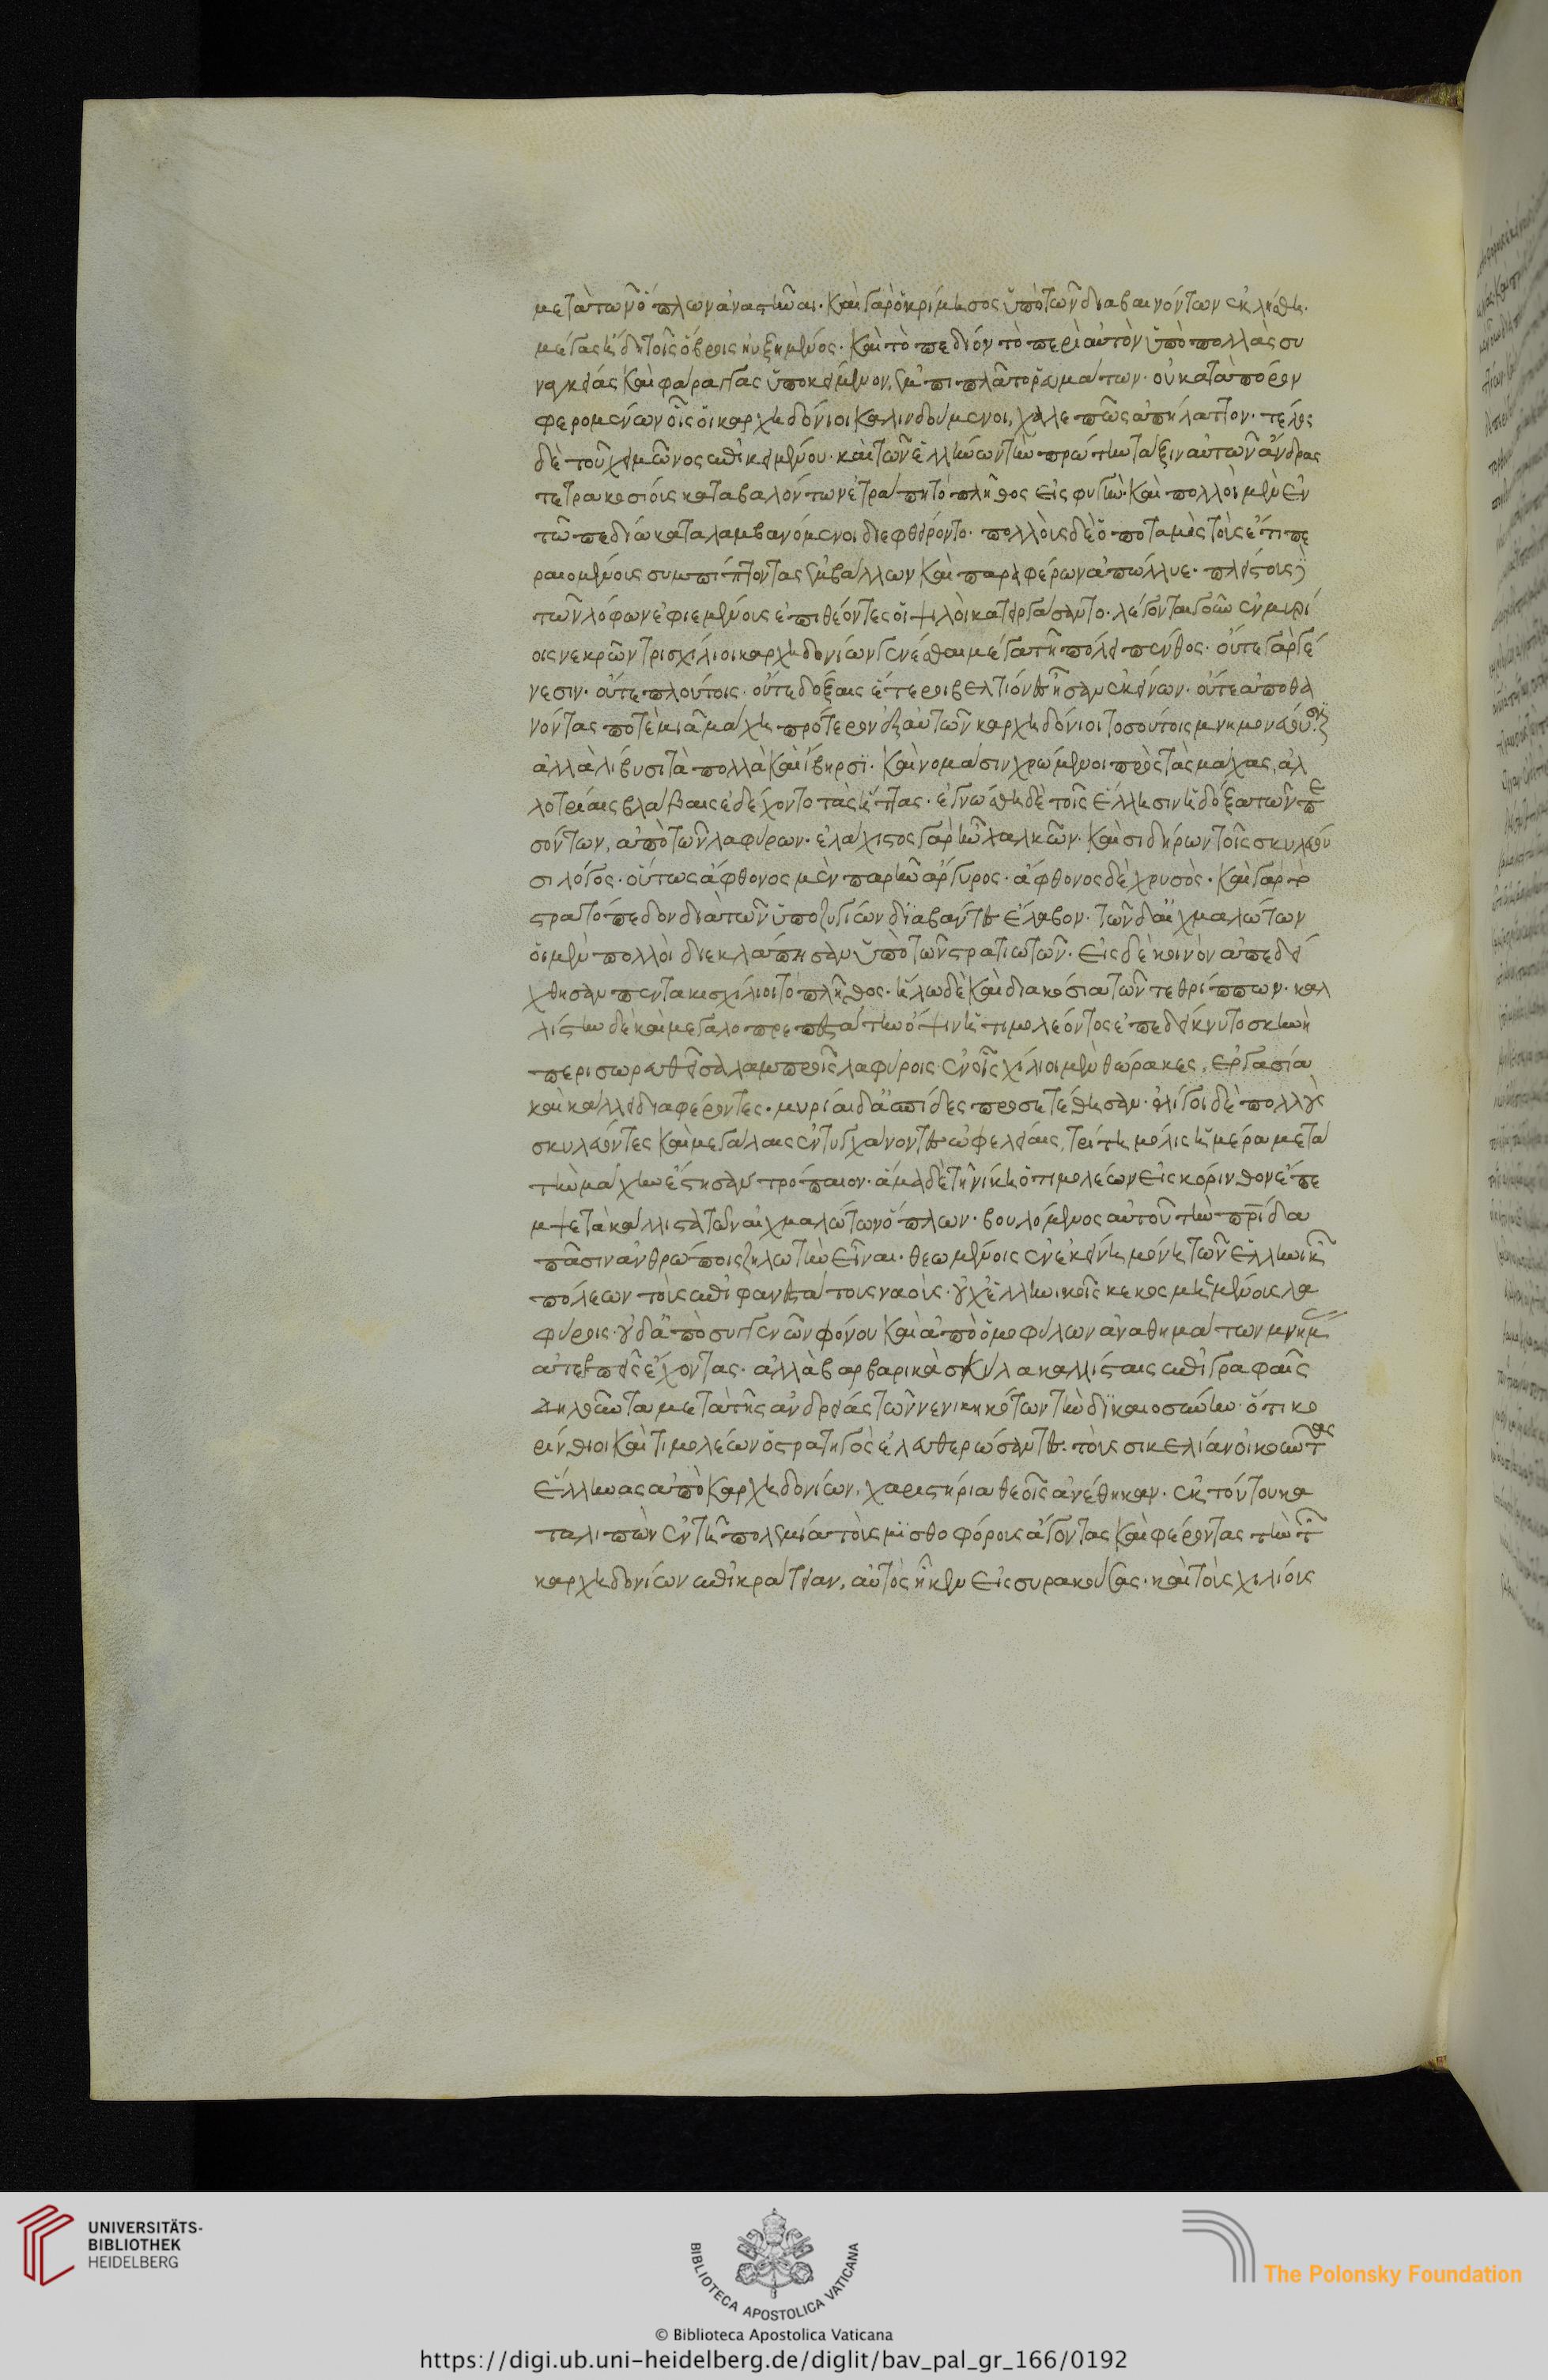 μετὰ τῶν ὅπλων ἀναστῆναι. καὶ γὰρ ὁ κρίμησος ὑπὸ τῶν διαβαινόντων ἐκλήθη.
μέγας ἤδη τοῖς ὄμβροις ηὐξημένος. καὶ τὸ πεδίον τὸ περὶ αὐτὸν ὑπὸ πολλὰς συ
ναγκείας καὶ φάραγγας ὑποκείμενον, ἐνεπίπλατο ῥευμάτων. οὐ κατὰ πόρον
φερομένων οἷς οἱ καρχηδόνιοι καλινδούμενοι, χαλεπῶς ἀπηλάττον. τέλος
δὲ τοῦ χειμῶνος ἐπικειμένου. καὶ τῶν ἑλλήνων τὴν πρώτην τάξιν αὐτῶν ἄνδρας
τετρακοσίους καταβαλόντων ἐτράπη τὸ πλῆθος εἰς φυγήν. καὶ πολλοὶ μὲν ἐν
τῶ πεδίω καταλαμβανόμενοι διεφθείροντο. πολλοὺς δὲ ὁ ποταμὸς τοῖς ἔτι πε
ραιουμένοις συμπίπτοντας ἐμβάλλων καὶ παραφέρων ἀπώλλυε. πλείστους δὲ
τῶν λόφων ἐφιεμένους ἐπιθέοντες οἱ ψιλοὶ κατειργάσαντο. λέγονται γοῦν ἐν μυρί
οις νεκρῶν τρισχίλιοι καρχηδονίων γενέσθαι μέγα τῆ πόλει πένθος. οὔτε γὰρ γέ
νεσιν. οὔτε πλούτοις. οὔτε δόξαις ἕτεροι βελτίονες ἦσαν ἐκείνων. οὔτε ἀποθα
νόντας ποτὲ μιᾶ μάχη πρότερον ἐξ αὐτῶν καρχηδόνιοι τοσούτους μνημονεύουσιν
ἀλλὰ λίβυσι τὰ πολλὰ καὶ ἴβηρσι. καὶ νομάσιν χρώμενοι πρὸς τὰς μάχας, ἀλ
λοτρίαις βλάβαις ἐδέχοντο τὰς ἥττας. ἐγνώσθη δὲ τοῖς ἕλλησιν ἡ δόξα τῶν πε
σόντων, ἀπὸ τῶν λαφύρων. ἐλάχιστος γὰρ ἦν χαλκῶν. καὶ σιδήρων τοῖς σκυλεύου
σι λόγος. οὕτως ἄφθονος μὲν παρῆν ἄργυρος. ἄφθονος δὲ χρυσὸς. καὶ γὰρ τὸ
στρατόπεδον διὰ τῶν ὑποζυγίων διαβάντες ἔλαβον. τῶν δ' αἰχμαλώτων
οἱ μὲν πολλοὶ διεκλάπησαν ὑπὸ τῶν στρατιωτῶν. εἰς δὲ κοινὸν ἀπεδεί
χθησαν πεντακισχίλιοι τὸ πλῆθος. ἥλω δὲ καὶ διακόσια τῶν τεθρίππων. καλ
λίστην δὲ καὶ μεγαλοπρεπεστάτην ὄψιν ἡ τιμολέοντος ἐπεδείκνυτο σκηνὴ
περισωρευθεῖσα λαμπροῖς λαφύροις. ἐν οἷς χίλιοι μὲν θώρακες, ἐργασία
καὶ κάλλει διαφέροντες. μυρίαι δ' ἀσπίδες προσετέθησαν. ὀλίγοι δὲ πολλοὺς
σκυλεύοντες καὶ μεγάλαις ἐντυγχάνοντες ὠφελείαις, τρίτη μόλις ἡμέρα μετὰ
τὴν μάχην ἔστησαν τρόπαιον. ἅμα δὲ τῆ νίκη ὁ τιμολέων εἰς κόρινθον ἔπε
μψε τὰ κάλλιστα τῶν αἰχμαλώτων ὅπλων. βουλόμενος αὐτοῦ τὴν πρίδα
πᾶσιν ἀνθρώποις ζηλωτὴν εἶναι. θεωμένοις ἐν ἐκείνη μόνη τῶν ἑλληνικῶν
πόλεων τοὺς ἐπιφανεστάτους ναοὺς. οὐχ ἑλληνικοῖς κεκοσμημένους λα
φύροις. οὐδ' ἀπὸ συγγενῶν φόνου καὶ ἀπὸ ὁμοφύλων ἀναθημάτων μνήμας
ἀτερπεῖς ἔχοντας. ἀλλὰ βαρβαρικὰ σκῦλα καλλίσταις ἐπιγραφαῖς
δηλοῦντα μετὰ τῆς ἀνδρείας τῶν νενικηκότων τὴν δικαιοσύνην. ὅτι κο
ρίνθιοι καὶ τιμολέων ὁ στρατηγὸς ἐλευθερώσαντες. τοὺς σικελίαν οἰκοῦντας
ἕλληνας ἀπὸ καρχηδονίων, χαριστήρια θεοῖς ἀνέθηκαν. ἐκ τούτου κα
ταλιπὼν ἐν τῆ πολεμία τοὺς μισθοφόρους ἄγοντας καὶ φέροντας τὴν τῶν
καρχηδονίων ἐπικράτειαν, αὐτὸς ἧκεν εἰς συρακούσας. καὶ τοὺς χιλίους
UNIVERSITÄTS-
BIBLIOTHEK
HEIDELBERG
BIBLIOTECA APOSTOLICA VATICANA
The Polonsky Foundation
© Biblioteca Apostolica Vaticana
https://digi.ub.uni-heidelberg.de/diglit/bav_pal_gr_166/0192